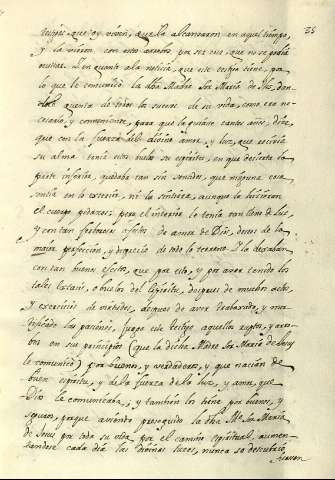 35
testigos, que oy viven, que la alcanzaron en aquel tiempo,
y la vieron con estos arrobos, por ser esto, que no se podia
ocultar. En quanto a la noticia, que este testigo tiene, por
lo que le comunicò la dha Madre Sor Maria de Jhs, dan-
dole quenta de todos los sucesos de su vida, como era ne-
cesario, y conveniente, para que la guiase tantos años, dice,
que con la fuerza del divino amor, y luz, que recivia
su alma tenia estos buelos su espiritu, en que dexaba la
parte inferior, quedaba tan sin sentidos, que ninguna cosa
sentia en lo exterior, ni la sintiera, aunque la hicieran
el cuerpo pedazos; pero el interior le tenia tan lleno de luz,
y con tan fervorosos afectos de amor de Dios, deseos de la
maior perfeccion, y desprecio de todo lo terreno. I la dexaban
con tan buenos efectos, que por ello, y por aver tenido los
tales extasis, o buelos del Espiritu, despues de muchos actos,
y exercicios de virtudes, despues de aver trabaxado, y mor-
tificado las pasiones, juzgo este testigo aquellos raptos, y arro-
bos en sus principios (que la dicha Madre Sor Maria de Jesus
le comunicò) por buenos, y verdaderos, y que nacian de
buen espiritu, y de la fuerza de la luz, y amor, que
Dios le comunicaba; y tambien los tiene por buenos, y
seguros, porque aviendo proseguido la dha Me Sor Maria
de Jesus por toda su vida por el camino espiritual, aumen-
tandose cada dia las Divinas luces, nunca se descubrio